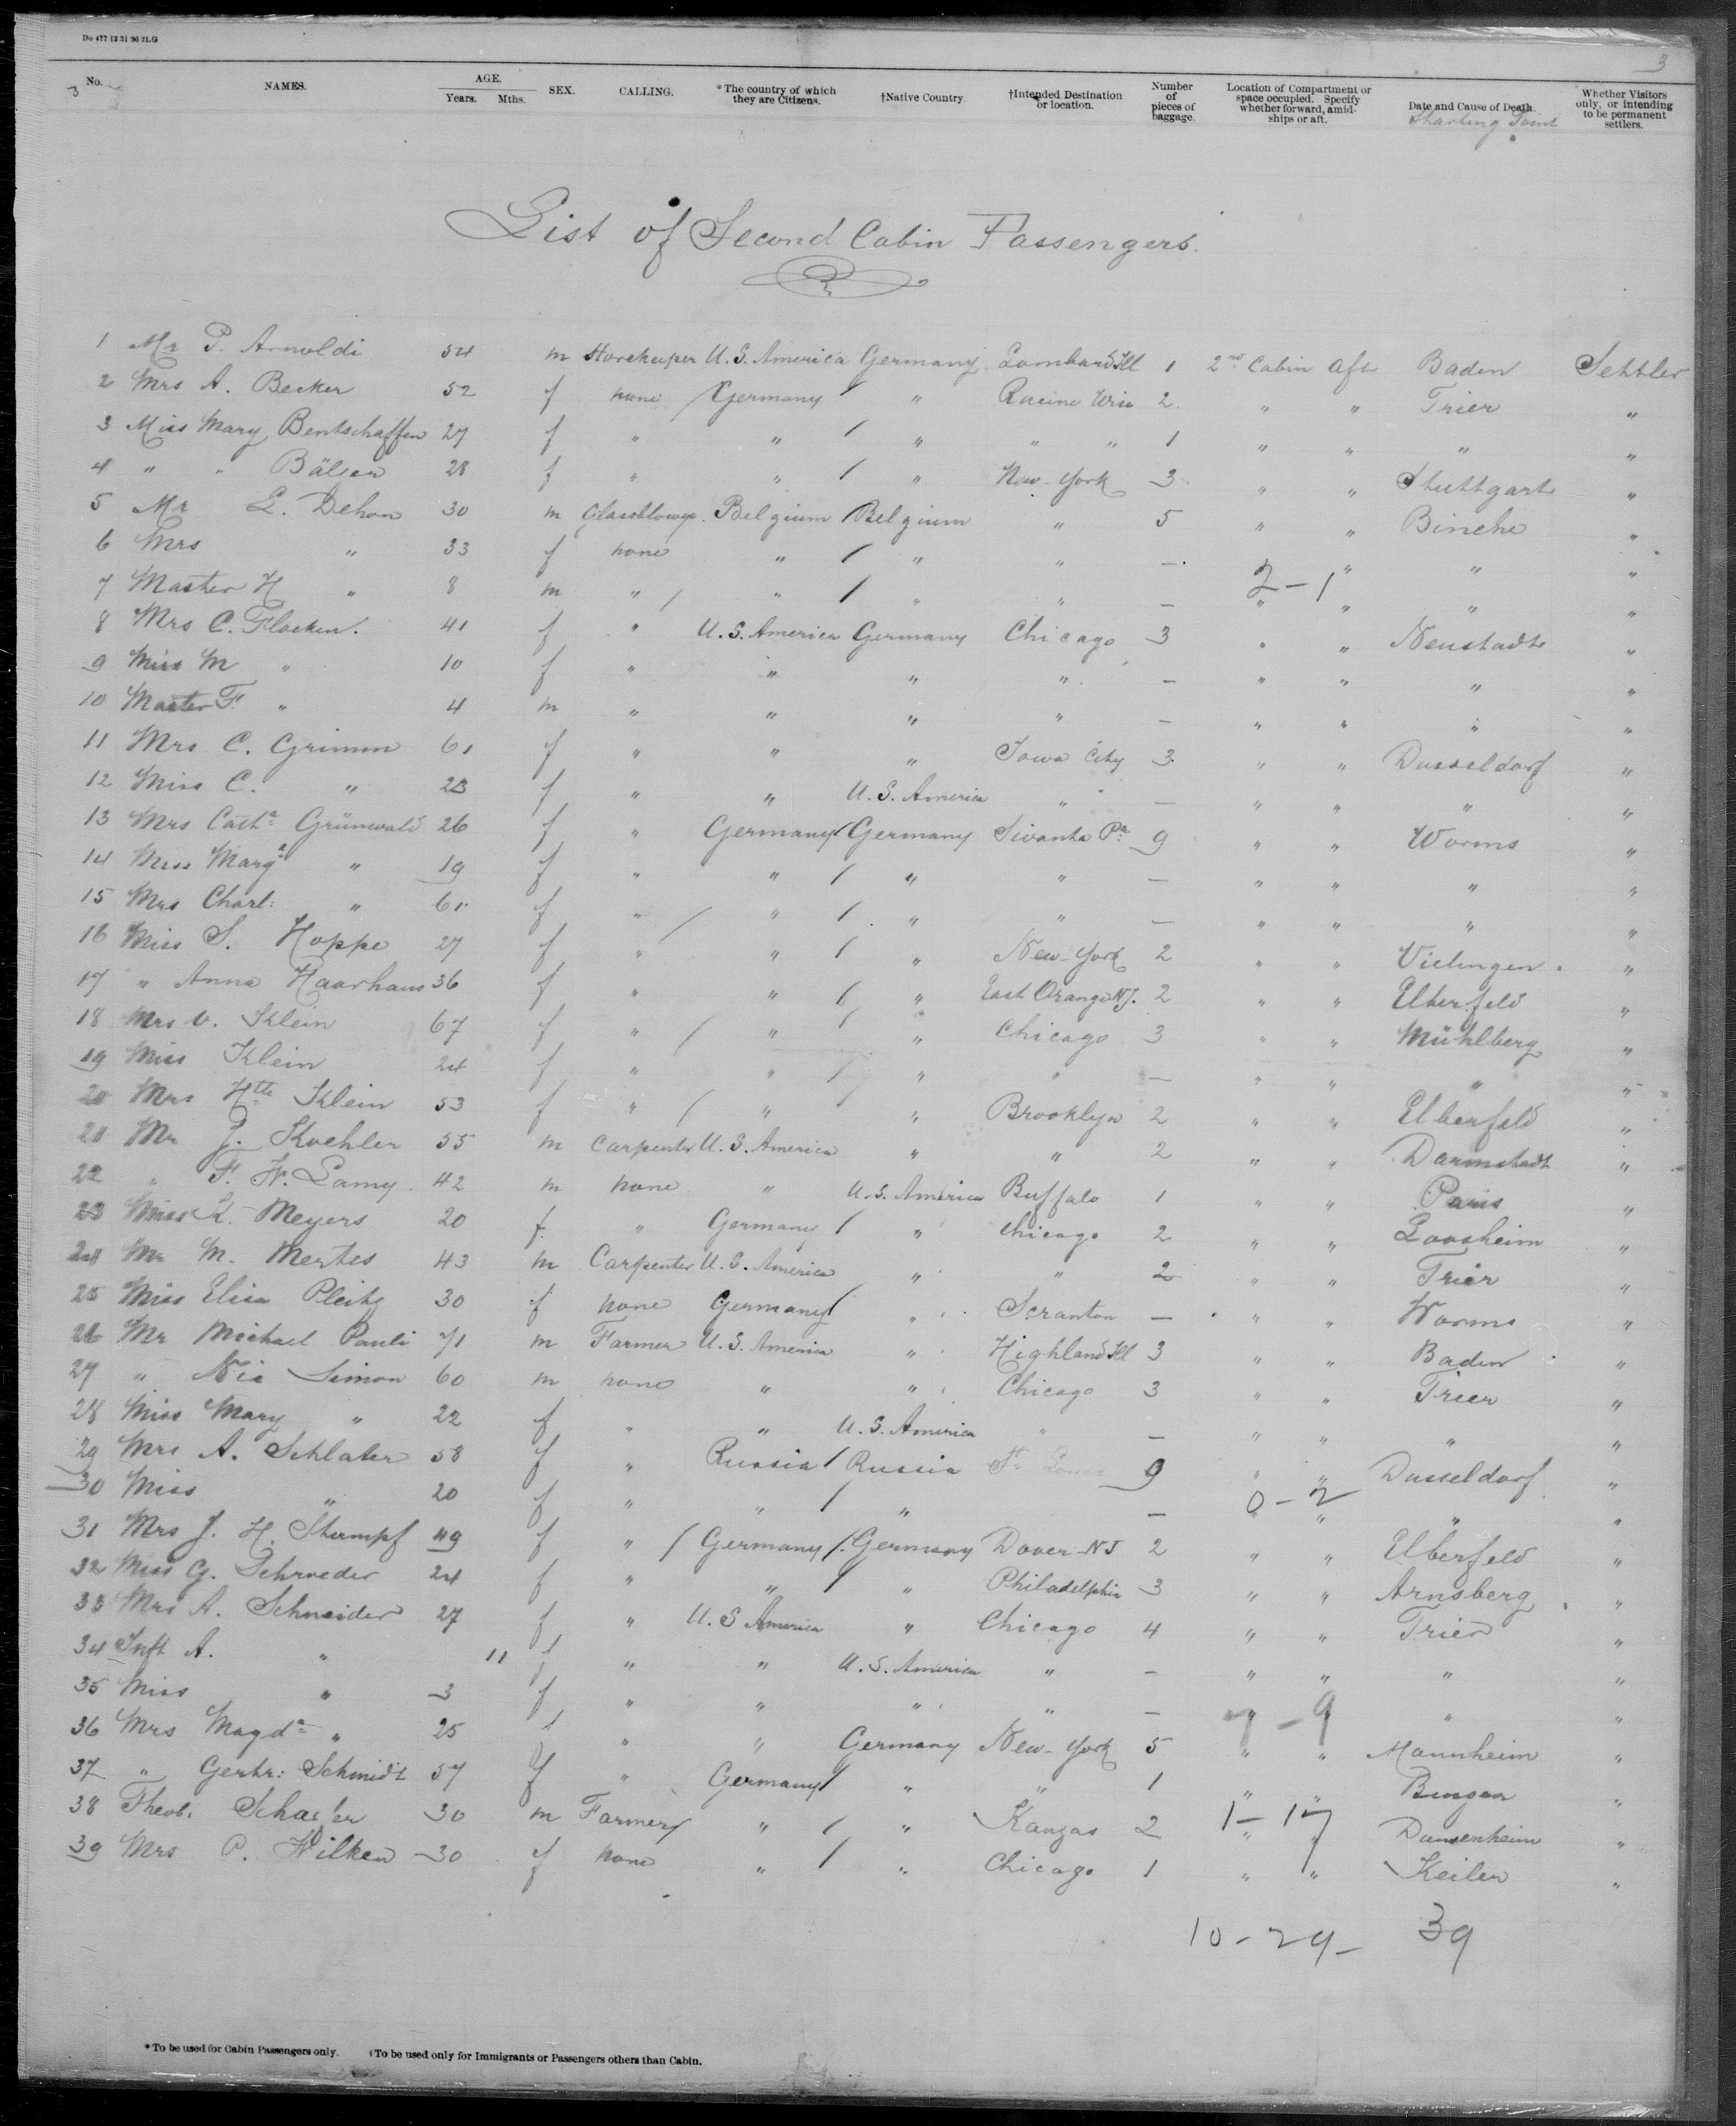 Do 477 12 31 90 2LG
3
No. NAMES. AGE. Years. Mths. SEX. CALLING. *The country of which they are Citizens. †Native Country. †Intended Destination or location. Number of pieces of baggage. Location of Compartment or space occupied. Specify whether forward, amidships or aft. Date and Cause of Death. Starting Point Whether Visitors only, or intending to be permanent settlers.
3
List of Second Cabin Passengers.
1 Mr P. Arnoldi 54 m Storekeeper U.S. America Germany Lombard Ill 1 2nd Cabin Aft Baden Settler
2 Mrs A. Becker 52 f none / Germany / " Racine Wis 2 " " Trier "
3 Miss Mary Bentschaffen 27 f " " / " " " 1 " " " "
4 " " Bälser 28 f " " / " New-York 3 " " Stuttgart "
5 Mr L. Dehon 30 m Glassblower Belgium / Belgium " 5 " " Binche "
6 Mrs " 33 f none " / " " — " " "
2 - 1
7 Master H " 8 m " / " / " " — " " " "
8 Mrs C. Flocken. 41 f " U.S. America Germany Chicago 3 " " Neustadt "
9 Miss M " 10 f " " " " — " " " "
10 Master F. " 4 m " " " " — " " " "
11 Mrs C. Grimm 61 f " " " Iowa City 3 " " Dusseldorf "
12 Miss C. " 23 f " " U.S. America " " — " " " "
13 Mrs Cath. Grünwald 26 f " Germany / Germany Pa 9 " " Worms "
14 Miss Marg. " 19 f " " / " " — " " " "
15 Mrs Charl: " 61 f " / " / " " — " " " "
16 Miss S. Hoppe 27 f " " / " New-York 2 " " "
17 " Anna Haarhaus 36 f " " / " East Orange NJ. 2 " " Elberfeld "
18 Mrs V. Klein 67 f " / " / " Chicago 3 " " Mühlberg "
19 Miss Klein 24 f " " / " " — " " " "
20 Mrs Htte Klein 53 f " / " / " Brooklyn 2 " " Elberfeld "
21 Mr J. Koehler 55 m Carpenter U.S. America " " 2 " " Darmstadt "
22 " F. W. Lamy 42 m none " U.S. America Buffalo 1 " " Paris "
23 Miss K. Meyers 20 f " Germany / " Chicago 2 " " "
24 Mr M. Mertes 43 m Carpenter U.S. America " " 2 " " Trier "
25 Miss Elisa Pleitz 30 f none Germany / " Scranton — " " Worms "
26 Mr Michael Pauli 71 m Farmer U.S. America " Highland Ill 3 " " Baden "
27 " Nic Simon 60 m none " " Chicago 3 " " Trier "
28 Miss Mary " 22 f " " U.S. America " — " " " "
29 Mrs A. Schlater 58 f " Russia / Russia St. Louis 9 " " Dusseldorf "
0 - 2
30 Miss " 20 f " " / " — " " " "
31 Mrs J. H. Stumpf 49 f " / Germany / Germany Dover NJ 2 " " Elberfeld "
32 Miss G. Schroeder 24 f " " / " Philadelphia 3 " " Arnsberg "
33 Mrs A. Schneider 27 f " U.S America " Chicago 4 " " Trier "
34 Inft A. " 11 f " " U.S. America " — " " " "
35 Miss " 3 f " " " " — " "
7 - 9
36 Mrs Magda " 25 f " " Germany New-York 5 " " Mannheim "
37 " Gertr: Schmidt 57 f " Germany / " " 1 " " Bingen "
1 - 17
38 Theob. 30 m Farmer / " / " Kanzas 2 " " "
39 Mrs P. Wilken 30 f none " / " Chicago 1 " " "
10 - 29 - 39
*To be used for Cabin Passengers only. †To be used only for Immigrants or Passengers others than Cabin.